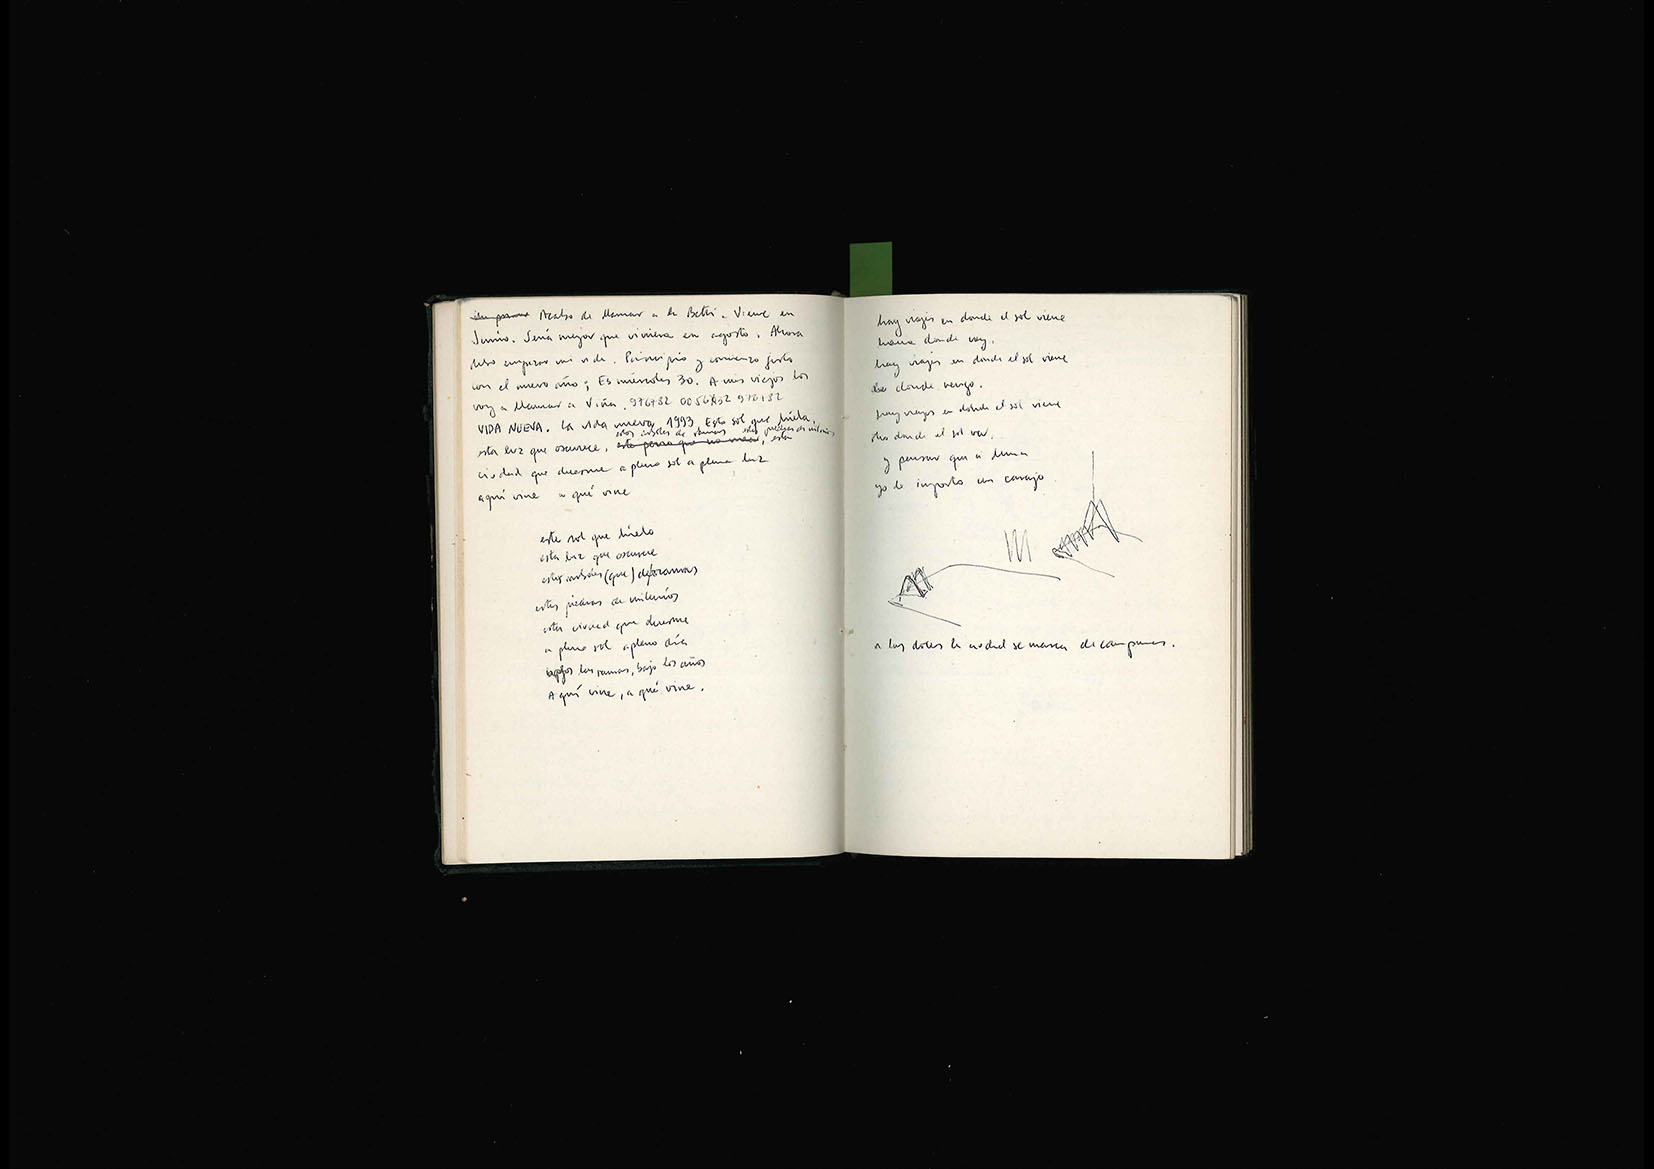 Acabo de llamar a la Betti. Viene en
Junio. Sería mejor que viniera en agosto. Ahora
debo empezar mi vida. Principio y comienzo justo
con el nuevo año; Es miércoles 30. A mis viejos los
voy a llamar a Viña. 976732 005632 976732
VIDA NUEVA. La vida nueva, 1993. Este sol que hiela,
estos árboles de ramas estas piedras de milenios
esta luz que oscurece, esta perra que no mea, esta
ciudad que duerme a pleno sol a plena luz
aquí vine a qué vine
este sol que hiela
esta luz que oscurece
estos árboles (que)
estas piedras de milenios
esta ciudad que duerme
a pleno sol a pleno día
las ramas, bajo los años
Aquí vine, a qué vine.
hay viajes en donde el sol viene
hacia donde voy.
hay viajes en donde el sol viene
de donde vengo.
hay viajes en donde el sol viene
donde el sol va.
y pensar que a
yo le importo un carajo
a las doce la ciudad se marea de campanas.